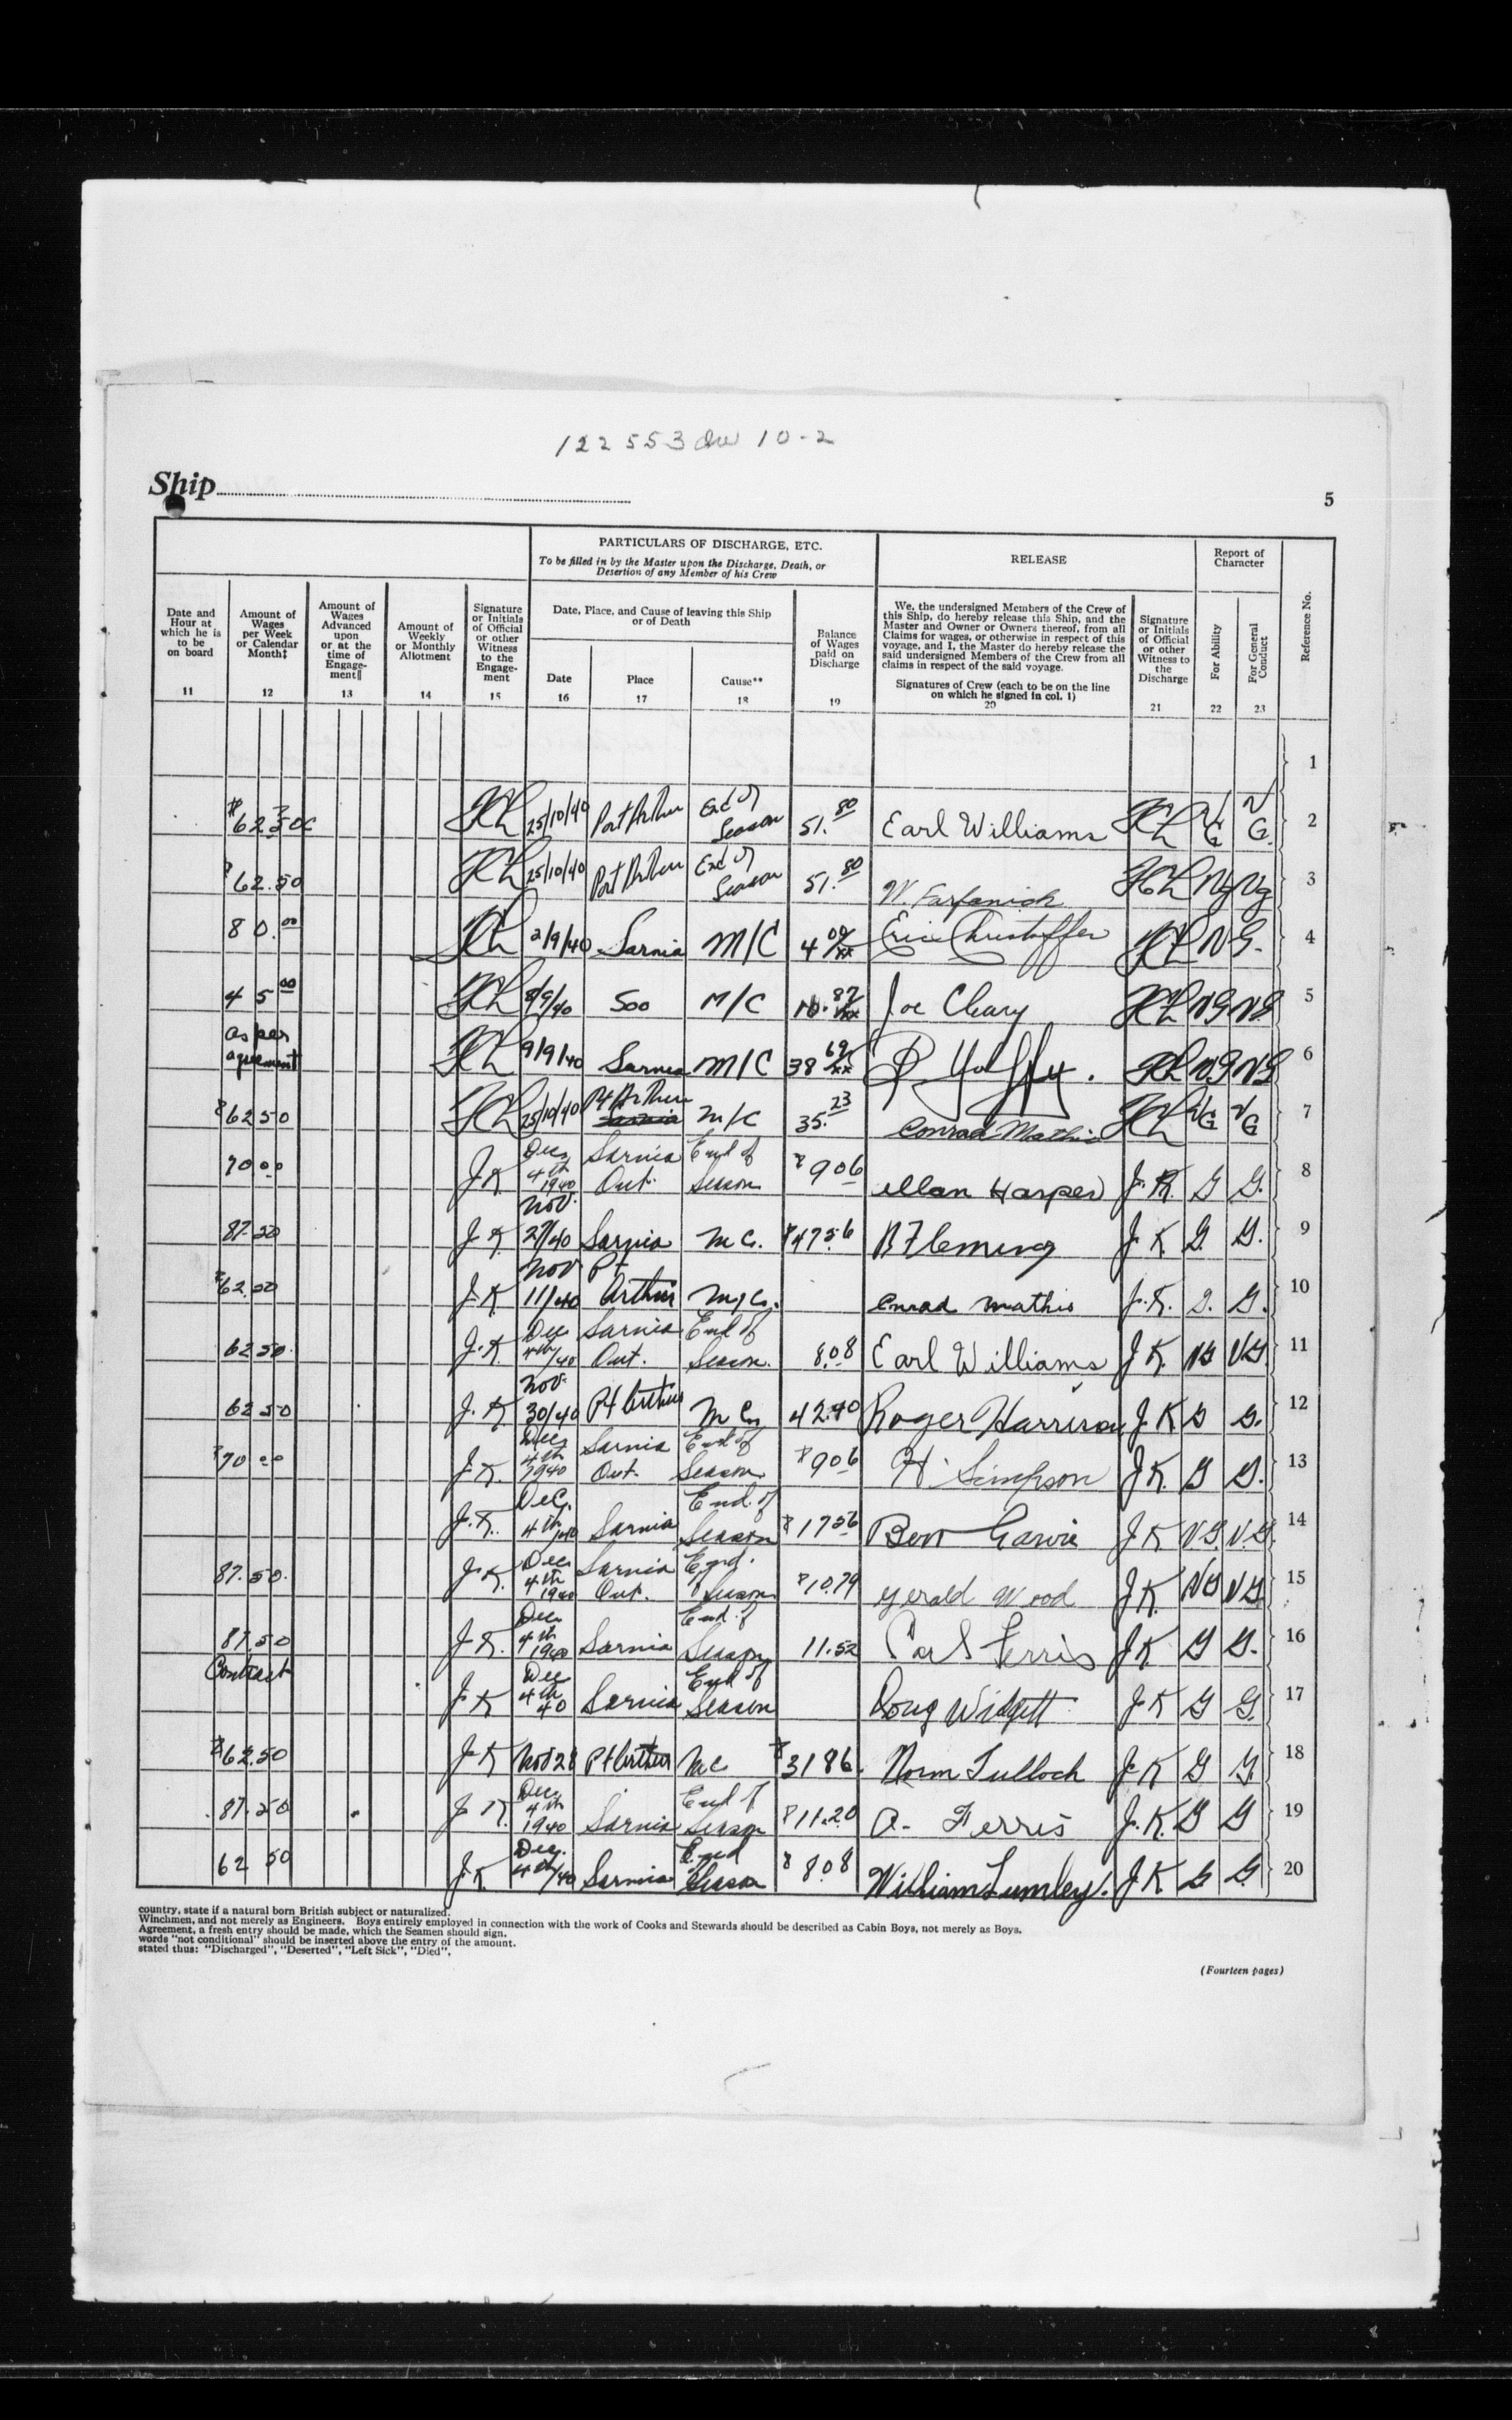 122553 10-2
Ship
5
PARTICULARS OF DISCHARGE, ETC.
To be filled in by the Master upon the Discharge, Death, or
Desertion of any Member of his Crew
RELEASE
Report of
Character
Date and
Hour at
which he is
to be
on board
11
Amount of
Wages
per Week
or Calendar
Month‡
12
Amount of
Wages
Advanced
upon
or at the
time of
Engage-
ment‖
13
Amount of
Weekly
or Monthly
Allotment
14
Signature
or Initials
of Official
or other
Witness
to the
Engage-
ment
15
Date, Place, and Cause of leaving this Ship
or of Death
Date
16
Place
17
Cause**
18
Balance
of Wages
paid on
Discharge
19
We, the undersigned Members of the Crew of
this Ship, do hereby release this Ship, and the
Master and Owner or Owners thereof, from all
Claims for wages, or otherwise in respect of this
voyage, and I, the Master do hereby release the
said undersigned Members of the Crew from all
claims in respect of the said voyage.
Signatures of Crew (each to be on the line
on which he signed in col. 1)
20
Signature
or Initials
of Official
or other
Witness to
the
Discharge
21
For Ability
22
For General
Conduct
23
Reference No.
1
25/10/40 Port Arthur End of Season 51.80 Earl Williams VG VG 2
$62.50 25/10/40 Port Arthur End of Season 51.80 W. Vg Vg 3
80.00 2/9/40 Sarnia M/C 4 Eric Christoffer VG. 4
45.00 8/9/40 Soo M/C Joe Cleary VG VG 5
as per agreement 9/9/40 Sarnia M/C 38 69/xx VG VG 6
$62 50 25/10/40 Pt Arthur Sarnia M/C 35.23 Conrad Mathis VG VG 7
70 00 J K Dec 4th 1940 Sarnia Ont. End of Season $9 06 Allan Harper J. K. G G. 8
87.50 J K Nov. 27/40 Sarnia M C. $47 56 B Fleming J K G. G. 9
$62.50 J. K Nov 11/40 Pt Arthur M/C. Conrad Mathis J. K. G. G. 10
62 50. J. K. Dec 4th/40 Sarnia Ont. End of Season. 8.08 Earl Williams J K. VG VG. 11
62 50 J. K Nov. 30/40 Pt Arthur M C 42.40 Roger Harrison J. K G G. 12
$70 00 J. K. Dec 4th 1940 Sarnia Ont. End of Season $9 06 H. Simpson J K. G G. 13
J. K. Dec. 4th/40 Sarnia End of Season $17 56 Ben J K V G. V. G. 14
87.50. J K. Dec 4th 1940 Sarnia Ont. End. Season $10.79 Gerald Wood J K. VG VG. 15
87.50 J K. Dec 4th 1940 Sarnia End of Season 11.52 Carl Ferris J K G G. 16
Contract J. K Dec 4th 40 Sarnia End of Season Doug Widgett J. K G G. 17
$62.50 J K Nov 28 Pt Arthur M C $31 86. Norm Tulloch J. K G G 18
87.50 J K. Dec 4th 1940 Sarnia End of Season $11.20 A. Ferris J. K. G G 19
62 50 J. K Dec. 4th/40 Sarnia End Season $ 8.08 William Lumley. J K G G. 20
country, state if a natural born British subject or naturalized.
Winchmen, and not merely as Engineers. Boys entirely employed in connection with the work of Cooks and Stewards should be described as Cabin Boys, not merely as Boys.
Agreement, a fresh entry should be made, which the Seamen should sign.
words "not conditional" should be inserted above the entry of the amount.
stated thus: "Discharged", "Deserted", "Left Sick", "Died".
(Fourteen pages)